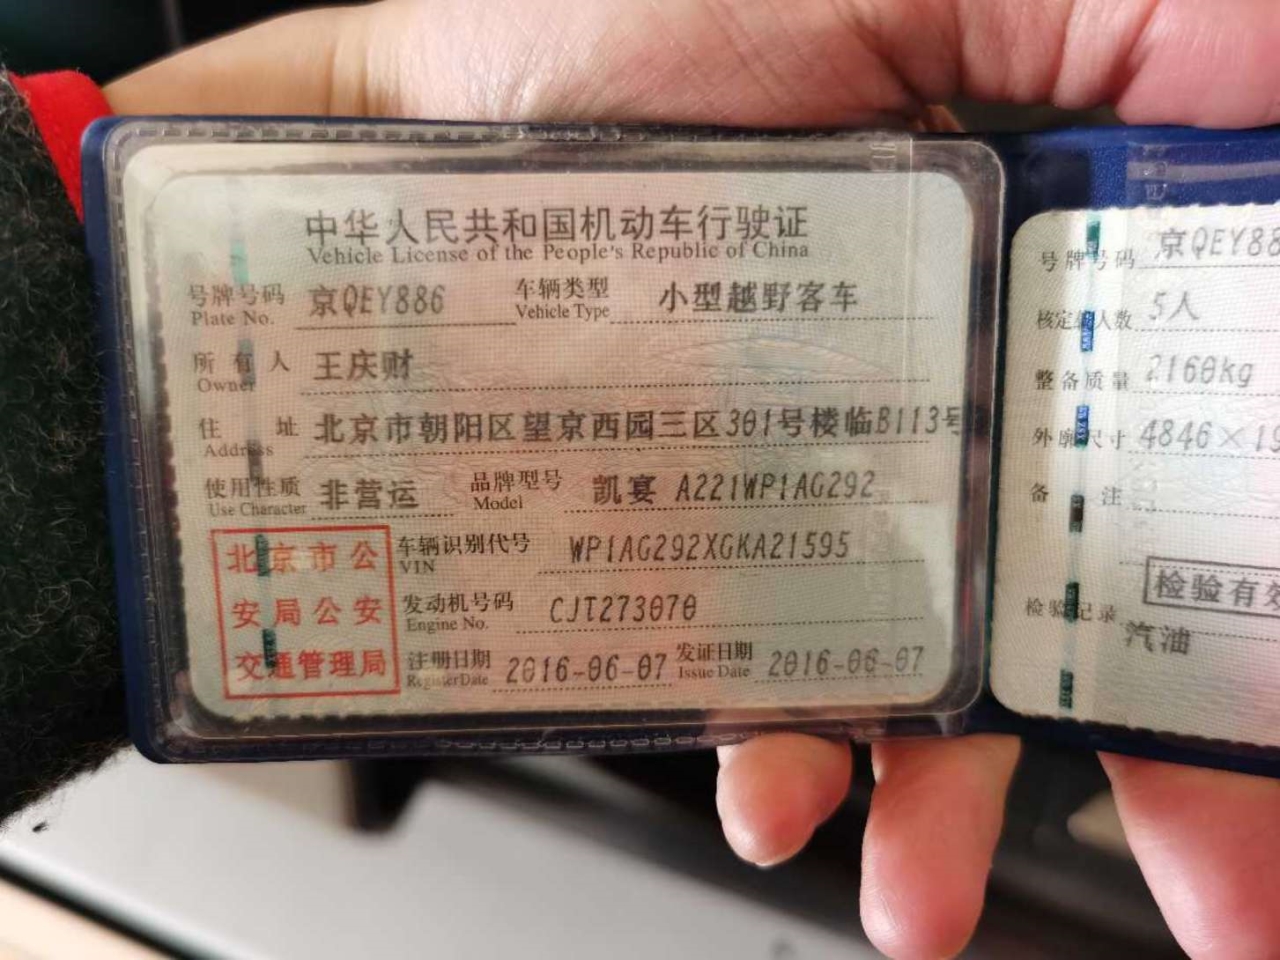 中华人民共和国机动车行驶证
Vehicle License of the People's Republic of China
号牌号码 京QEY886 车辆类型 小型越野客车
Plate No. Vehicle Type
所有人 王庆财
Owner
住址 北京市朝阳区望京西园三区301号楼临B113号
Address
使用性质 非营运 品牌型号 凯宴 A221WP1AG292
Use Character Model
北京市公
安局公安
交通管理局
车辆识别代号 WP1AG292XGKA21595
VIN
发动机号码 CJT273070
Engine No.
注册日期 2016-06-07 发证日期 2016-06-07
Register Date Issue Date
号牌号码 京QEY88
核定载人数 5人
整备质量 2160kg
外廓尺寸 4846×19
备注
检验有效
检验记录
汽油